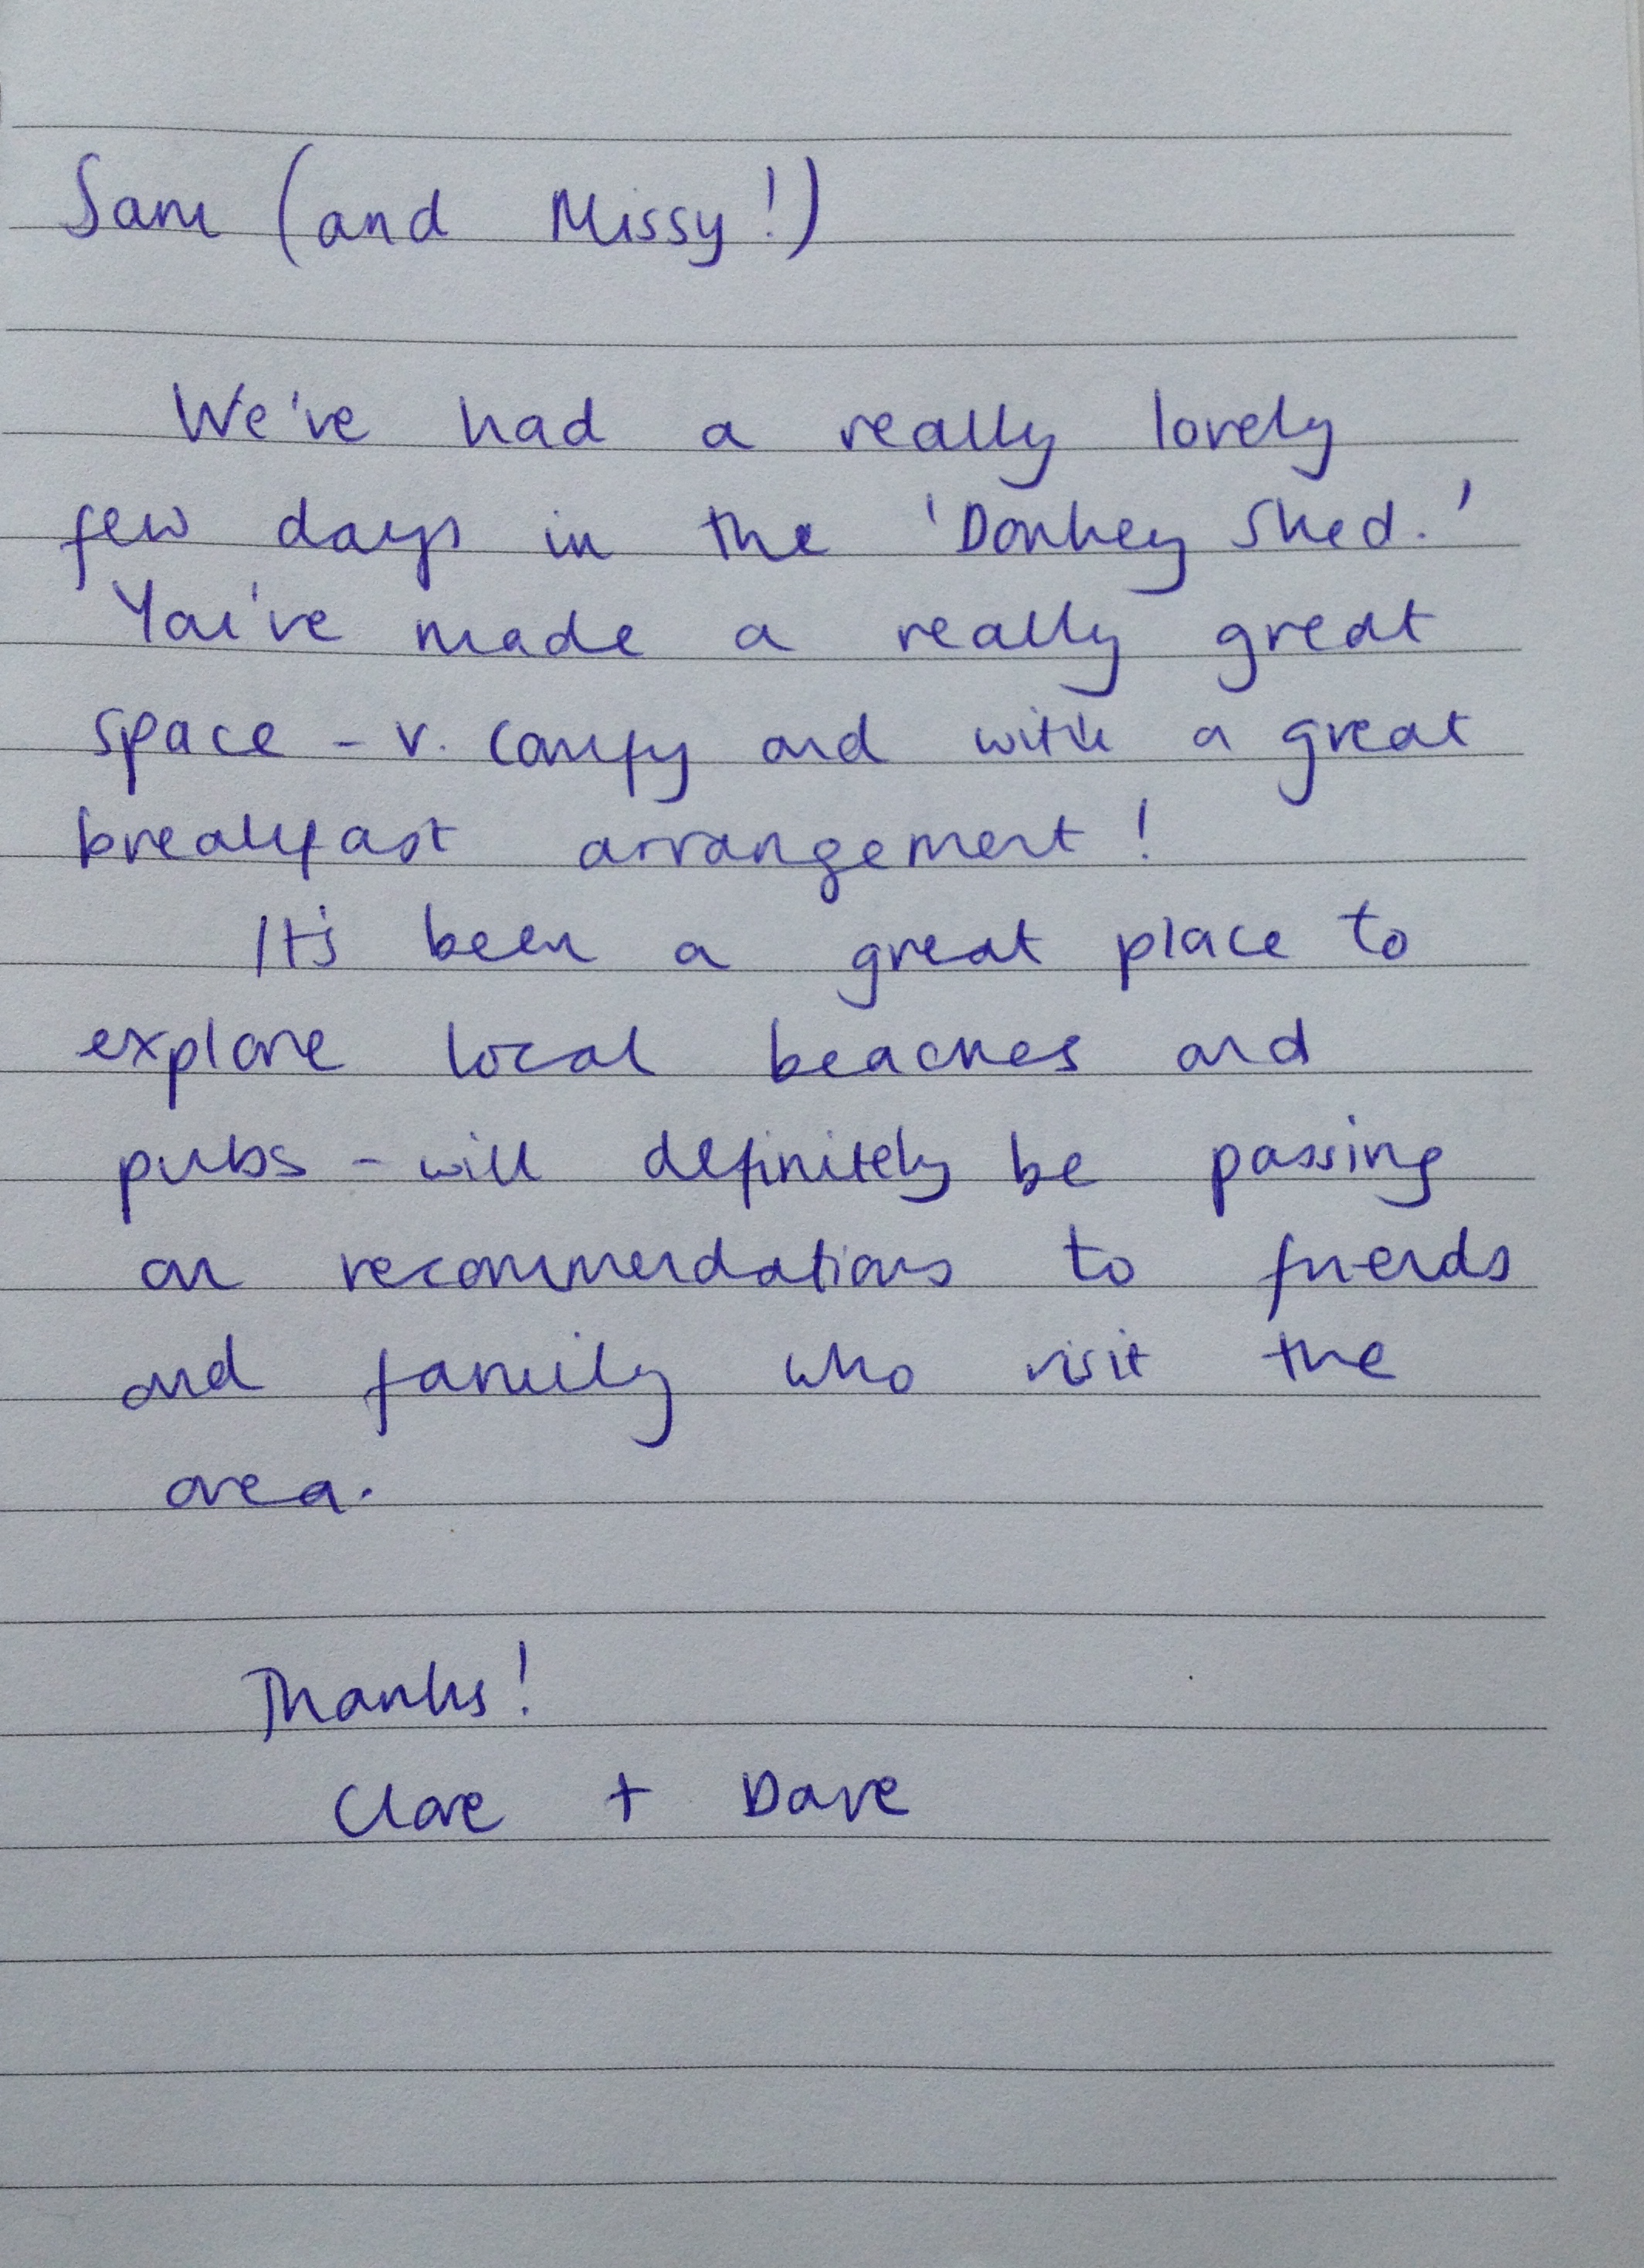 Sam (and Missy!)
We've had a really lovely
few days in the 'Donkey Shed.'
You've made a really great
space - v. comfy and with a great
breakfast arrangement!
It's been a great place to
explore local beaches and
pubs - will definitely be passing
on recommendations to friends
and family who visit the
area.
Thanks!
Clare + Dave